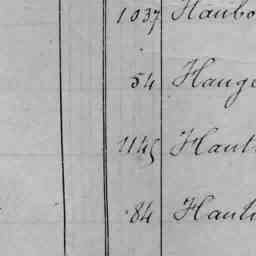 1037 Haubo
54 Hauge
1145 Haut
84 Haut